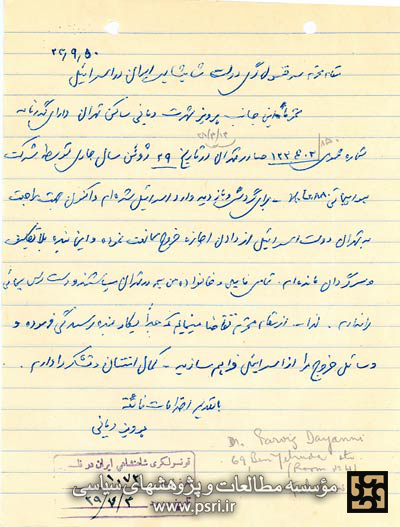 مقام محترم سرقنسولگری دولت شاهنشاهی ایران در اسرائیل
محترماً این جانب پرویز شهرت دیانی ساکن تهران دارای گذرنامه
شماره صادره تهران از تاریخ ۲۹ ژوئن سال جاری توسط شرکت
هواپیمائی برای گردش و وارد اسرائیل شده‌ام و اکنون جهت مراجعت
به تهران دولت اسرائیل از دادن اجازه خروج ممانعت نموده و این بنده بلاتکلیف
و سرگردان مانده‌ام. تمامی فامیل و خانواده من در تهران میباشند و دسترسی بجائی
را ندارم. لذا از مقام محترم تقاضا مینمایم که جداً بکار بنده رسیدگی فرموده و
وسائل خروج مرا از اسرائیل فراهم سازید - کمال امتنان و تشکر را دارم.
با تقدیم احترامات فائقه
پرویز دیانی
Dr. Parviz Dayanni
69 Ben Yehuda str
(Room
قونسولگری شاهنشاهی ایران در
مؤسسه مطالعات و پژوهشهای سیاسی
www.psri.ir